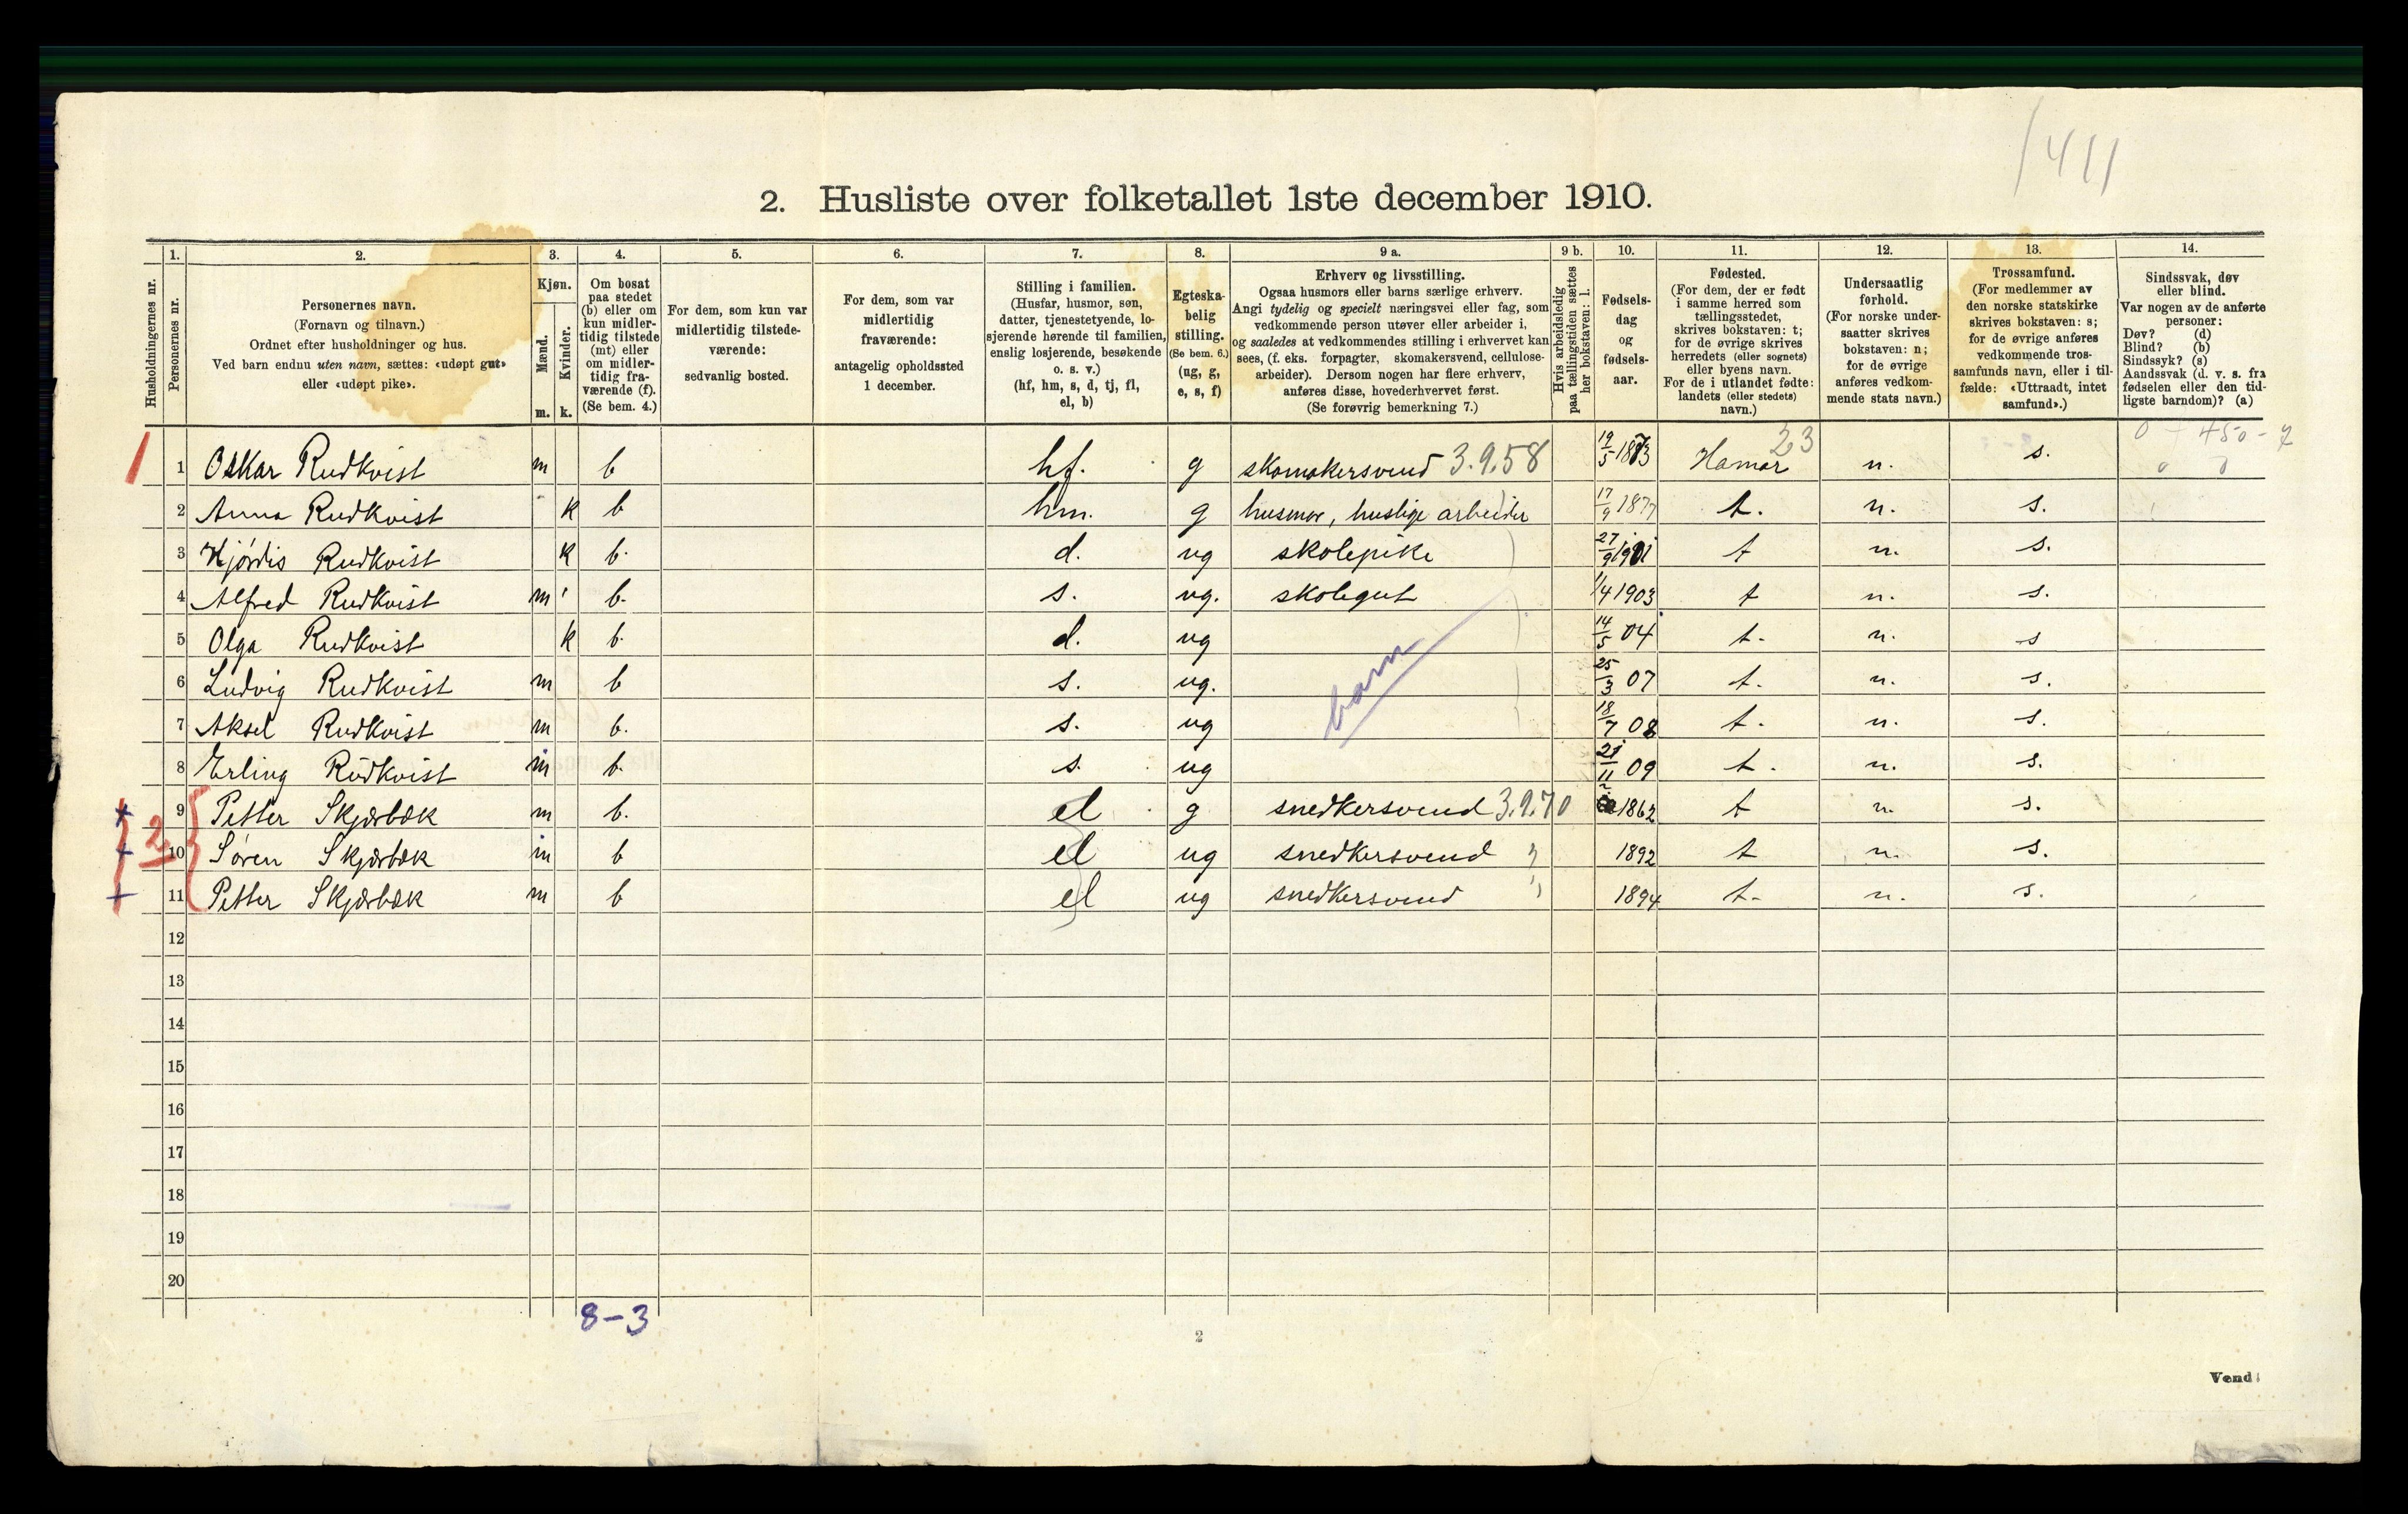 1411
2. Husliste over folketallet 1ste december 1910.
Husholdningernes nr.
1. Personernes nr.
2. Personernes navn.
(Fornavn og tilnavn.)
Ordnet efter husholdninger og hus.
Ved barn endnu uten navn, sættes: «udøpt gut»
eller «udøpt pike».
3. Kjøn.
Mænd. m.
Kvinder. k.
4. Om bosat
paa stedet
(b) eller om
kun midler-
tidig tilstede
(mt) eller
om midler-
tidig fra-
værende (f).
(Se bem. 4.)
5. For dem, som kun var
midlertidig tilstede-
værende:
sedvanlig bosted.
6. For dem, som var
midlertidig
fraværende:
antagelig opholdssted
1 december.
7. Stilling i familien.
(Husfar, husmor, søn,
datter, tjenestetyende, lo-
sjerende hørende til familien,
enslig losjerende, besøkende
o. s. v.)
(hf, hm, s, d, tj, fl,
el, b)
8. Egteska-
belig
stilling.
(Se bem. 6.)
(ug, g,
e, s, f)
9 a. Erhverv og livsstilling.
Ogsaa husmors eller barns særlige erhverv.
Angi tydelig og specielt næringsvei eller fag, som
vedkommende person utøver eller arbeider i,
og saaledes at vedkommendes stilling i erhvervet kan
sees, (f. eks. forpagter, skomakersvend, cellulose-
arbeider). Dersom nogen har flere erhverv,
anføres disse, hovederhvervet først.
(Se forøvrig bemerkning 7.)
9 b. Hvis arbeidsledig
paa tællingstiden sættes
her bokstaven: l.
10. Fødsels-
dag
og
fødsels-
aar.
11. Fødested.
(For dem, der er født
i samme herred som
tællingsstedet,
skrives bokstaven: t;
for de øvrige skrives
herredets (eller sognets)
eller byens navn.
For de i utlandet fødte:
landets (eller stedets)
navn.)
12. Undersaatlig
forhold.
(For norske under-
saatter skrives
bokstaven: n;
for de øvrige
anføres vedkom-
mende stats navn.)
13. Trossamfund.
(For medlemmer av
den norske statskirke
skrives bokstaven: s;
for de øvrige anføres
vedkommende tros-
samfunds navn, eller i til-
fælde: «Uttraadt, intet
samfund».)
14. Sindssvak, døv
eller blind.
Var nogen av de anførte
personer:
Døv? (d)
Blind? (b)
Sindssyk? (s)
Aandssvak (d. v. s. fra
fødselen eller den tid-
ligste barndom)? (a)
1 1 Oskar Rudkvist m b hf. g skomakersvend 3.9.58 19/5 1873 Hamar 23 n. s.
2 Anna Rudkvist k b hm. g husmor, huslige arbeider 17/9 1877 t. n. s.
3 Hjørdis Rudkvist k b. d. ug skolepike 27/9 1901 t n. s.
4 Alfred Rudkvist m b. s. ug. skolegut 1/4 1903 t n. s.
5 Olga Rudkvist k b. d. ug 14/5 04 t. n. s
6 Ludvig Rudkvist m b s. ug. 25/3 07 t. n. s.
barn
7 Aksel Rudkvist m b. s. ug 18/7 08 t. n. s.
8 Erling Rudkvist m b. s. ug 21/11 09 t. n. s.
9 Petter Skjærbæk m b. el g snedkersvend 3.9.70 1862 t n. s.
2 10 Søren Skjærbæk m b el ug snedkersvend " 1892 t n. s.
11 Petter Skjærbæk m b el ug snedkersvend " 1894 t. n. s.
12
13
14
15
16
17
18
19
20
8-3
2
Vend!